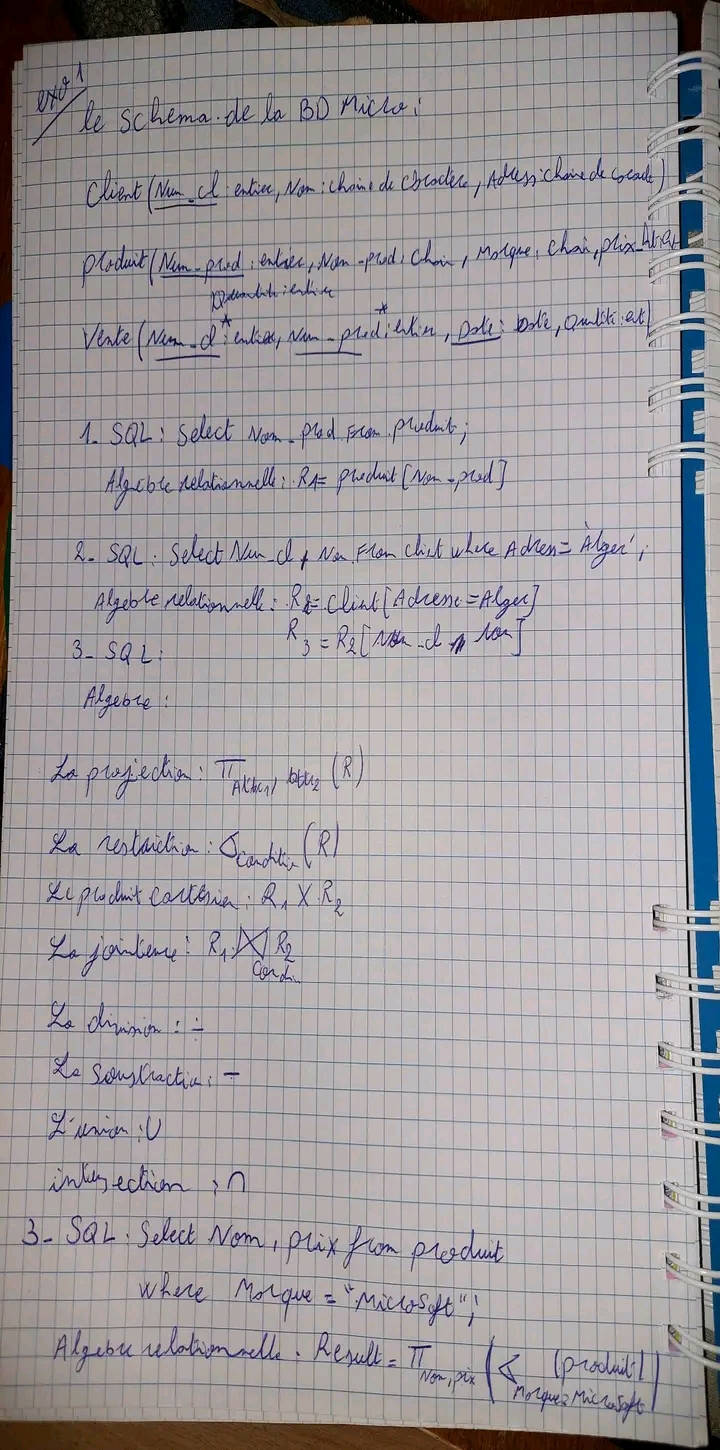 exo 1
le schema de la BD Micro :
Client (Num_cl : entier, Nom : chaine de caractere, Adress : chaine de)
produit (Num_prod : entier, Nom-prod : chain, Marque : chain, prix
: entier
Vente (Num_cl* : entier, Num_prod* : entier, Date : Date, Quntité : ent)
1- SQL : Select Nom_prod From produit ;
Algèbre relationnelle : R1= produit [Nom-prod]
2- SQL : Select Num_cl, Nom From Client where Adress = 'Alger' ;
Algèbre relationnelle : R2= Client [Adresse = Alger]
R3 = R2 [Num_cl, Nom]
3- SQL :
Algebre :
La projection : π Attr1, Attr2 (R)
La restriction : σ Condition (R)
Le produit cartesien : R1 X R2
La jointure : R1 ⋈ R2
Condi
La division : ÷
La soustraction : −
L'union : ∪
intersection : ∩
3- SQL : Select Nom, prix from produit
where Marque = "MicroSoft" ;
Algebre relationnelle : Result = π Nom, prix (σ (produit)
Marque = MicroSoft)